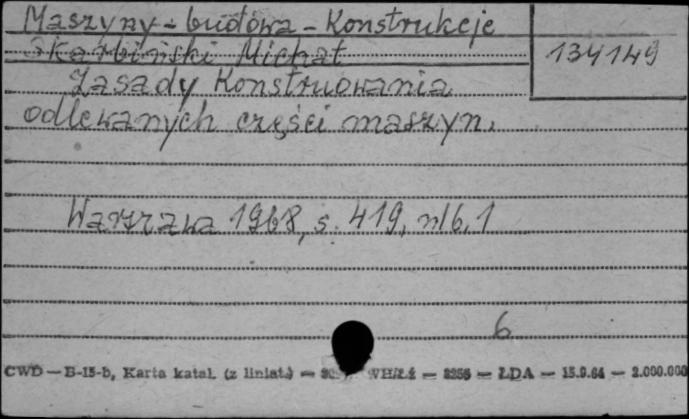 Maszyny - budowa - Konstrukcje
Skarbiński Michał
134149
Zasady Konstruowania
odlewanych części maszyn.
Warszawa 1968, s. 419, nl 6, 1
6
CWD — B-15-b, Karta katal. (z liniat.) — WH/Łź — 3256 — ŁDA — 15.9.64 — 2.000.000